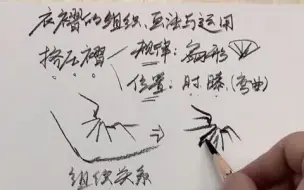 衣褶的组织、画法与运用
挤压褶
规律:扇形
位置:肘、膝(弯曲)
组织关系